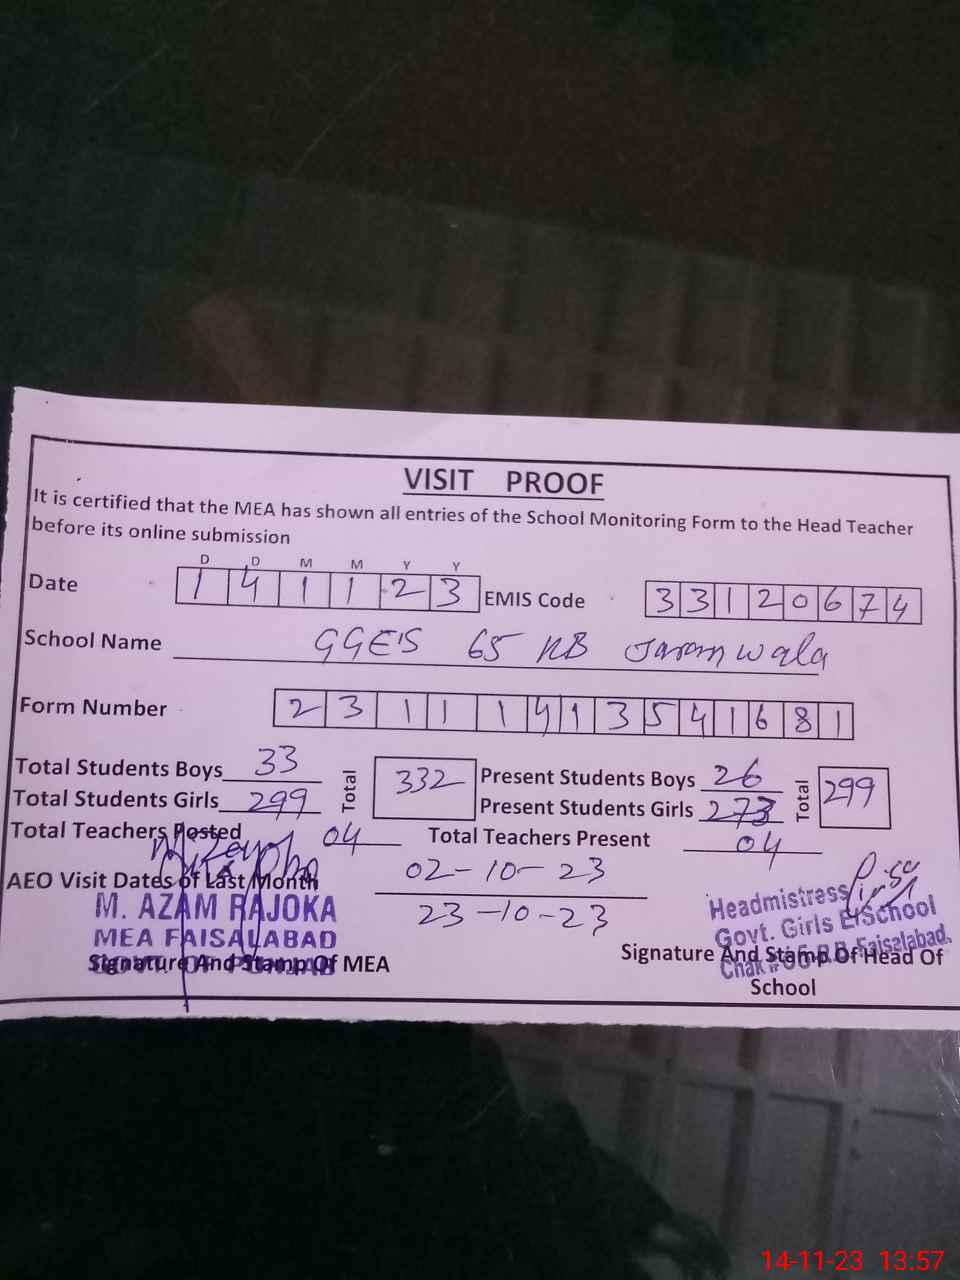 VISIT PROOF
It is certified that the MEA has shown all entries of the School Monitoring Form to the Head Teacher
before its online submission
D D M M Y Y
Date 1 4 1 1 2 3 EMIS Code 3 3 1 2 0 6 7 4
School Name GGE'S 65 RB Jaranwala
Form Number 2 3 1 1 1 4 1 3 5 4 1 6 8 1
Total Students Boys 33 Total 332 Present Students Boys 26 Total 299
Total Students Girls 299 Present Students Girls 273
Total Teachers Posted 04 Total Teachers Present 04
AEO Visit Dates of Last Month 02-10-23
23-10-23
M. AZAM RAJOKA
MEA FAISALABAD
Signature And Stamp Of MEA
Headmistress
Govt. Girls E/School
Chak # R.B. Faisalabad.
Signature And Stamp Of Head Of
School
14-11-23 13:57